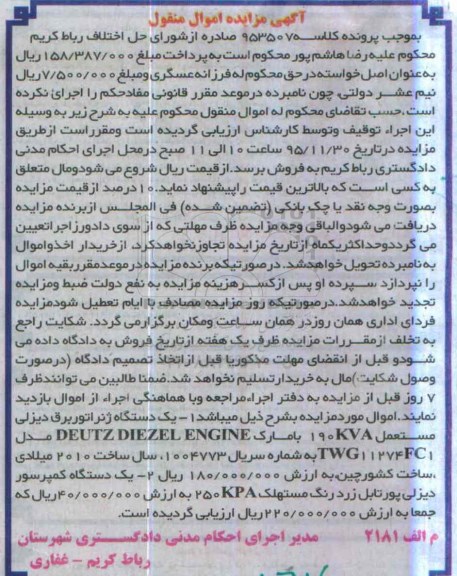 آگهی مزایده اموال منقول
بموجب پرونده کلاسه ۹۵۳۵۰۷ صادره از شورای حل اختلاف رباط کریم
محکوم علیه رضا هاشم پور محکوم است به پرداخت مبلغ ۱۵۸/۳۸۷/۰۰۰ ریال
به عنوان اصل خواسته در حق محکوم له فرزانه عسگری و مبلغ ۷/۵۰۰/۰۰۰ ریال
نیم عشر دولتی، چون نامبرده در موعد مقرر قانونی مفاد حکم را اجرائ نکرده
است، حسب تقاضای محکوم له اموال منقول محکوم علیه به شرح زیر به وسیله
این اجراء توقیف وتوسط کارشناس ارزیابی گردیده است ومقرر است از طریق
مزایده در تاریخ ۹۵/۱۱/۳۰ ساعت ۱۰ الی ۱۱ صبح در محل اجرای احکام مدنی
دادگستری رباط کریم به فروش برسد. از قیمت ریال شروع می شود و مال متعلق
به کسی است که بالاترین قیمت را پیشنهاد نماید. ۱۰ درصد از قیمت مزایده
بصورت وجه نقد یا چک بانکی (تضمین شده) فی المجلس از برنده مزایده
دریافت می شود والباقی وجه مزایده ظرف مهلتی که از سوی دادورز اجرا تعیین
می گردد وحداکثر یکماه از تاریخ مزایده تجاوز نخواهد کرد. از خریدار اخذ و اموال
به نامبرده تحویل خواهد شد. در صورتیکه برنده مزایده در موعد مقرر بقیه اموال
را نپردازد سپرده او پس از کسر هزینه مزایده به نفع دولت ضبط ومزایده
تجدید خواهد شد. در صورتیکه روز مزایده مصادف با ایام تعطیل شود مزایده
فردای اداری همان روز در همان ساعت ومکان برگزار می گردد. شکایت راجع
به تخلف از مقررات مزایده ظرف یک هفته از تاریخ فروش به دادگاه داده می
شود و قبل از انقضای مهلت مذکور یا قبل از اتخاذ تصمیم دادگاه (در صورت
وصول شکایت) مال به خریدار تسلیم نخواهد شد. ضمنا طالبین می توانند ظرف
۷ روز قبل از مزایده به دفتر اجراء مراجعه وبا هماهنگی اجراء از اموال بازدید
نمایند. اموال مورد مزایده بشرح ذیل میباشد ۱- یک دستگاه ژنراتور برق دیزلی
مستعمل ۱۹۰KVA با مارک DEUTZ DIEZEL ENGINE مدل
TWG۱۱۲۷۴FC۱ به شماره سریال ۱۰۰۴۷۷۳، سال ساخت ۲۰۱۰ میلادی
،ساخت کشور چین، به ارزش ۱۸۰/۰۰۰/۰۰۰ ریال ۲- یک دستگاه کمپرسور
دیزلی پورتابل زرد رنگ مستهلک ۲۵۰KPA به ارزش ۴۰/۰۰۰/۰۰۰ ریال که
جمعا به ارزش ۲۲۰/۰۰۰/۰۰۰ ریال ارزیابی گردیده است.
م الف ۲۱۸۱ مدیر اجرای احکام مدنی دادگستری شهرستان
رباط کریم - غفاری